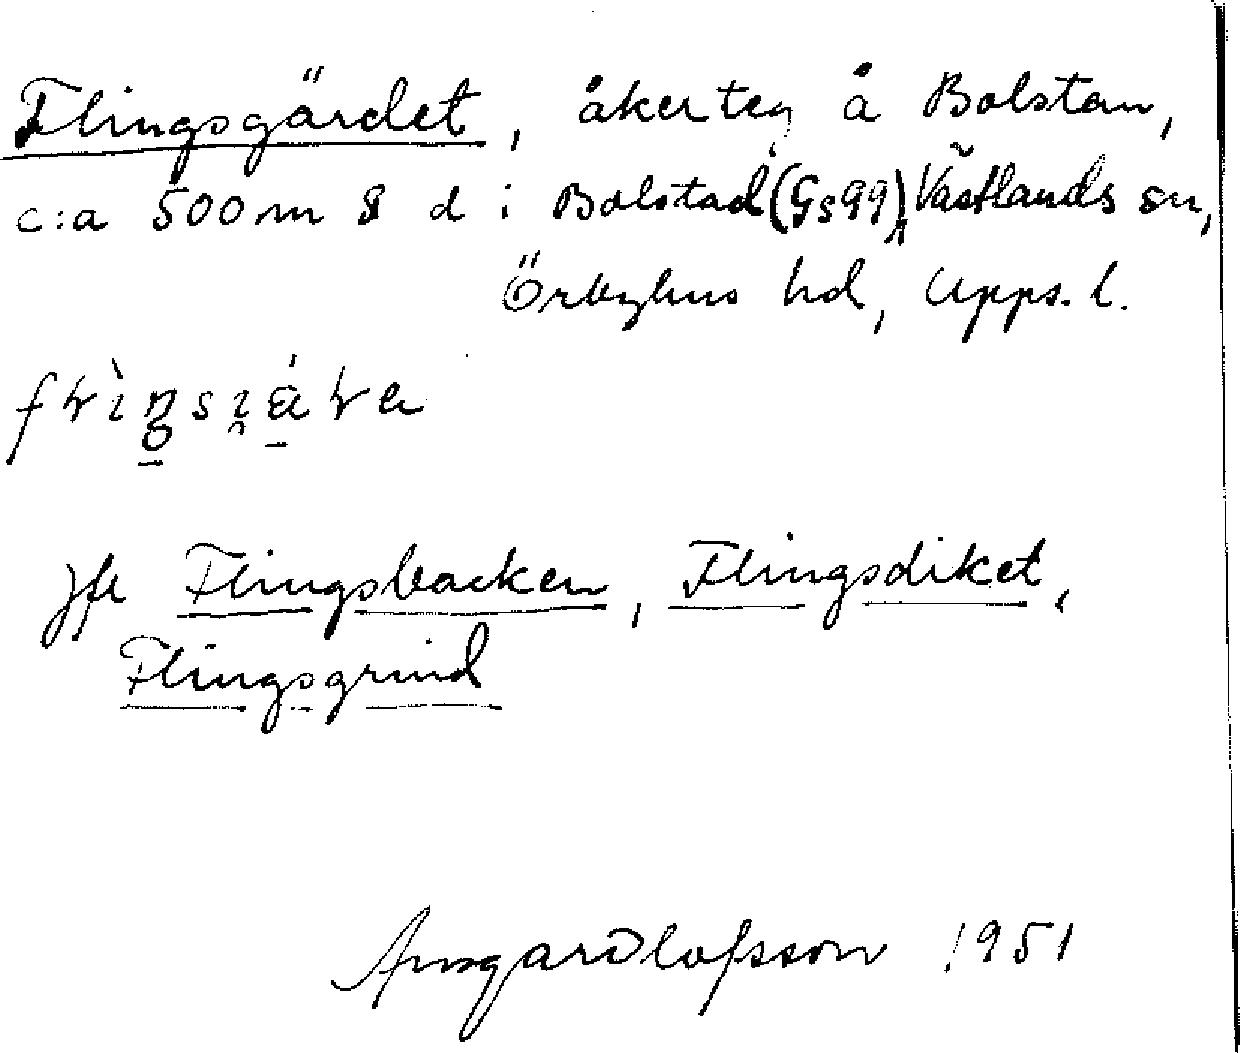 Flingsgärdet, åkerteg å Bolstan,
c:a 500m S d i Bolstad (Gs99), Västlands sn,
Örbyhus hd, Upps. l.
jfr Flingsbacken, Flingsdiket,
Flingsgrind
Ansgar Olofsson 1951